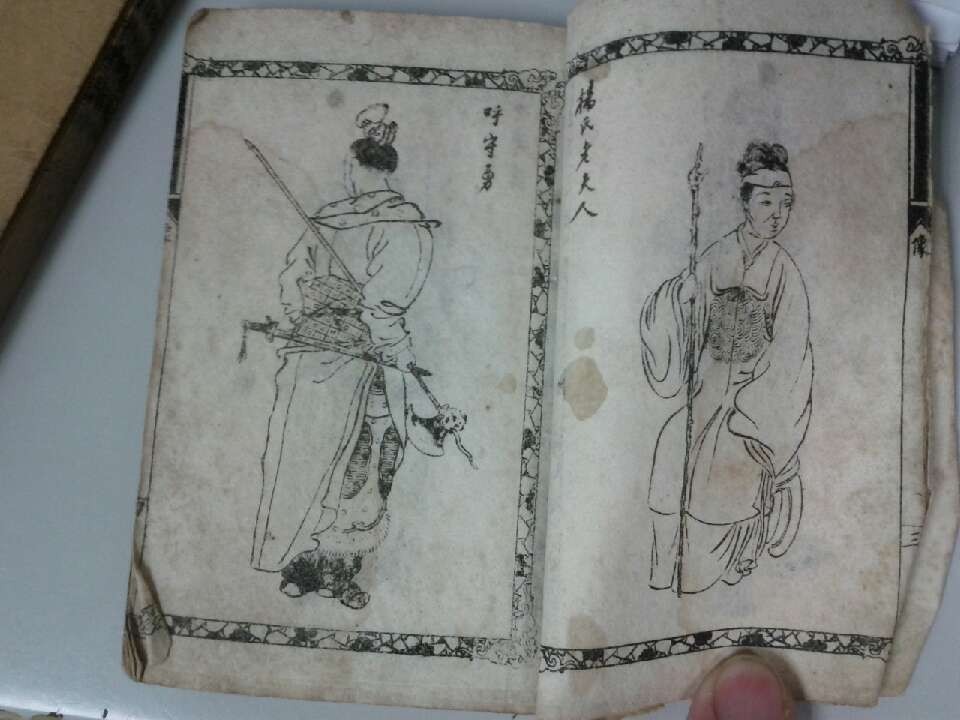 像
三
楊氏老夫人
呼守勇